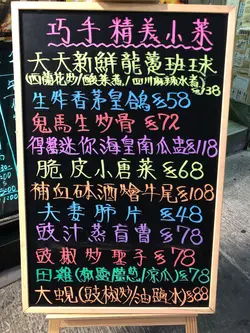 巧手精美小菜
天天新鮮龍躉班球
(西蘭花炒/酸菜煮/四川麻辣水煮)$138
生炸香茅皇鴿$58
鬼馬生炒骨$72
得龍迷你海皇南瓜盅$118
脆皮小唐菜$68
補血砵酒燴牛尾$108
夫妻肺片$48
豉汁蒸盲曹$78
豉椒炒聖子$78
田雞(椒鹽/薑蔥/涼瓜)$78
大蜆(豉椒炒/油鹽水)$88